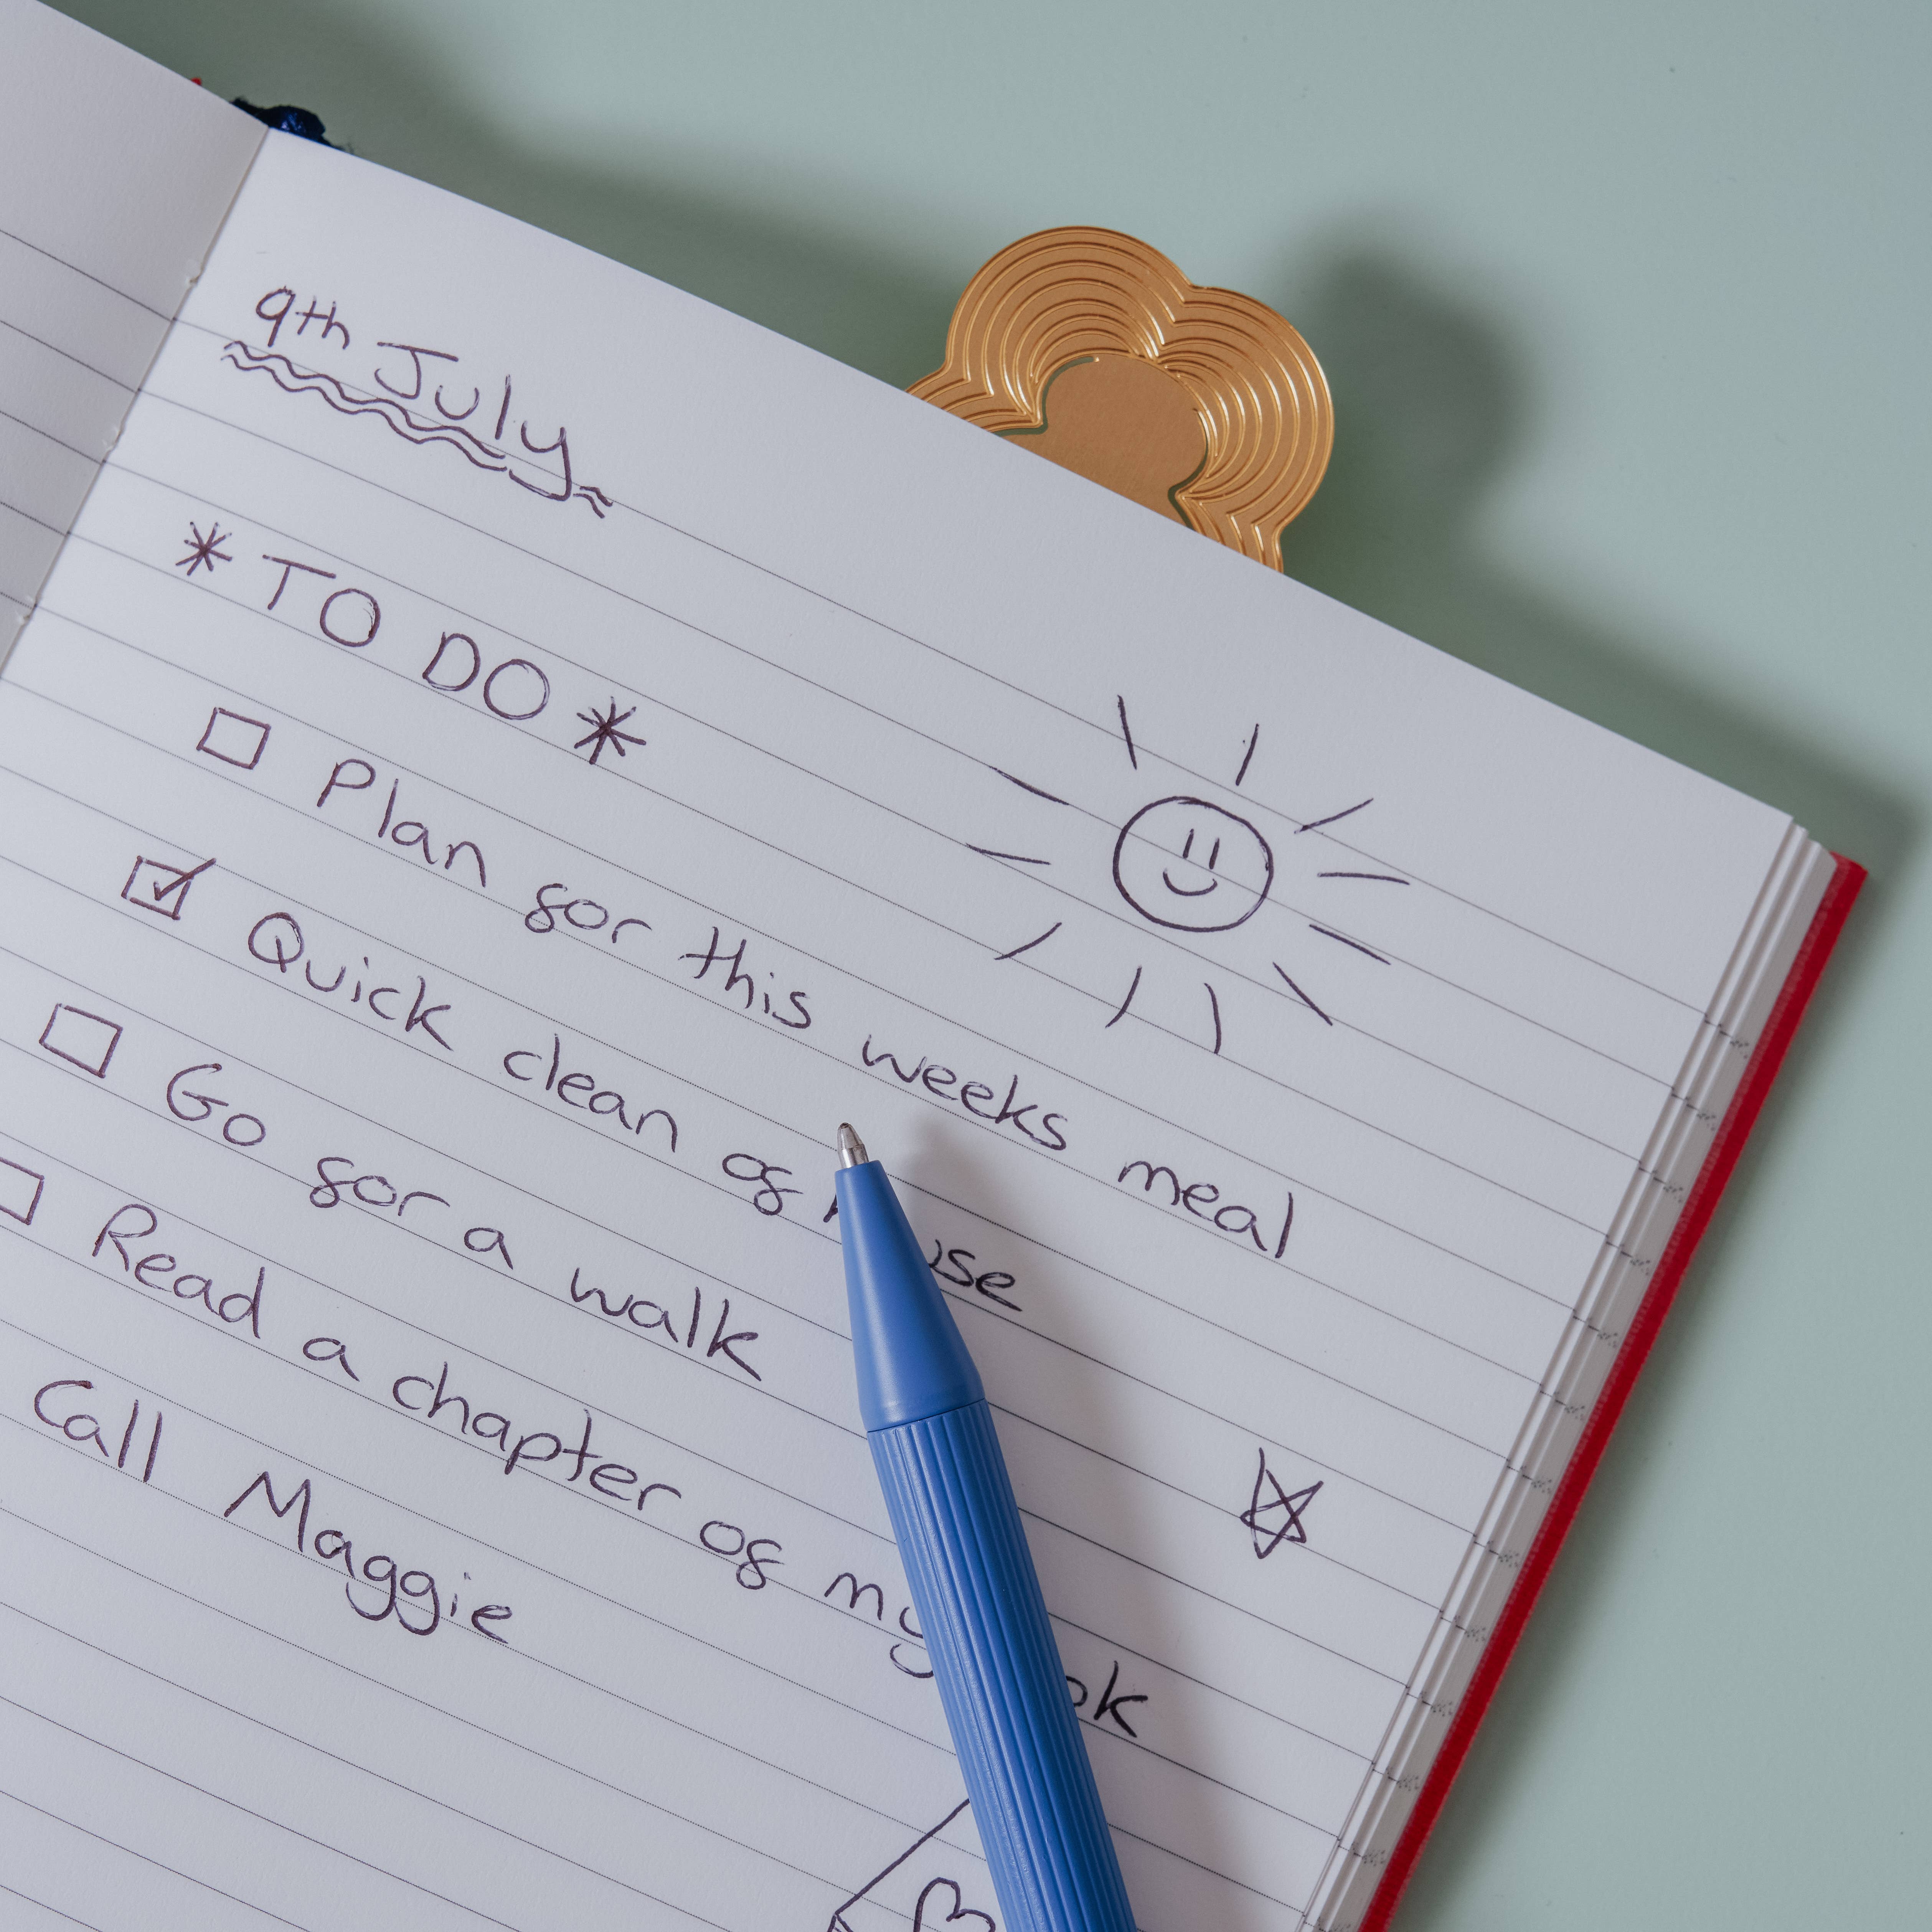 9th July
* TO DO *
Plan for this weeks meal
Quick clean of
Go for a walk
Read a chapter of my
Call Maggie